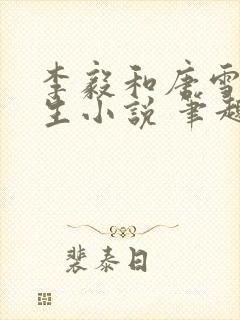 李毅和唐雪
生小说 笔趣
裴泰日